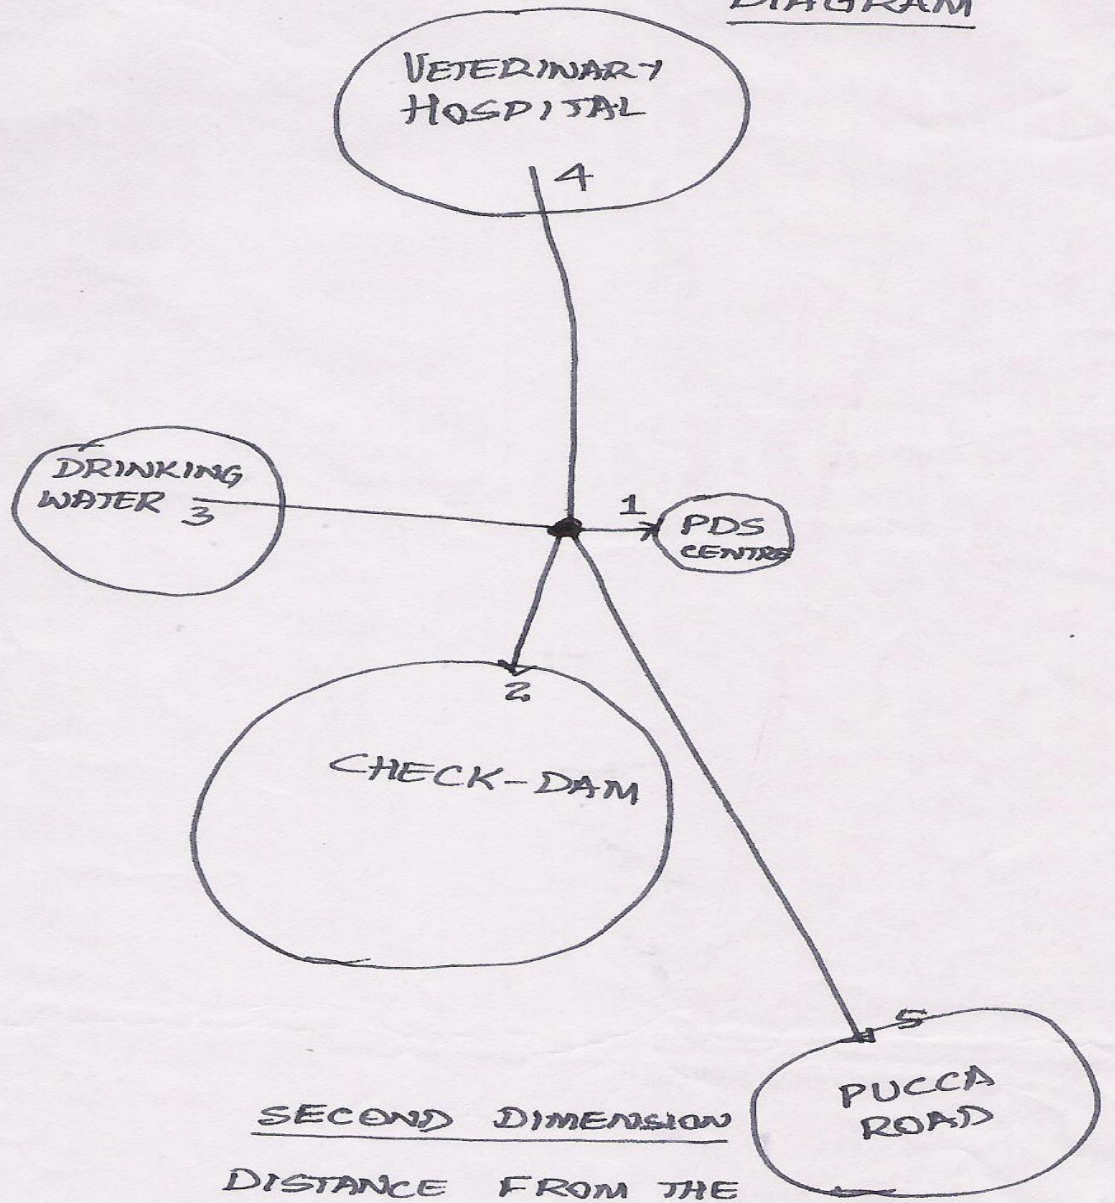 DIAGRAM
VETERINARY
HOSPITAL
4
DRINKING
WATER 3
1
PDS
CENTRE
2
CHECK-DAM
5
PUCCA
ROAD
SECOND DIMENSION
DISTANCE FROM THE